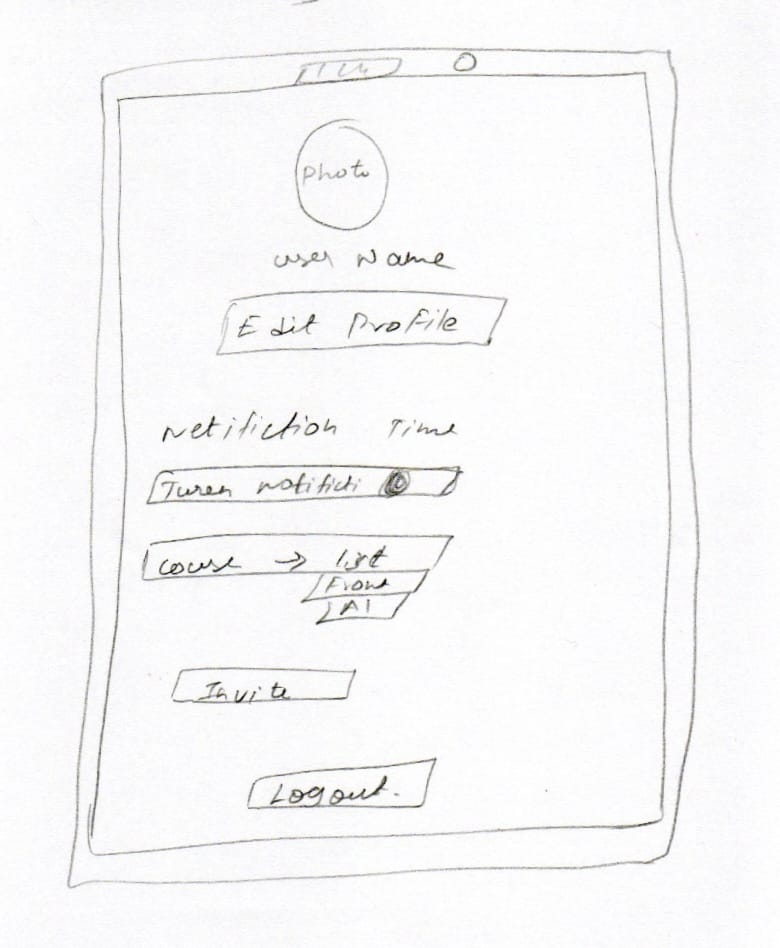 Photo
user Name
Edit Profile
Netifiction Time
Turen Notificti
course → list
Frone
AI
Invite
Logout.